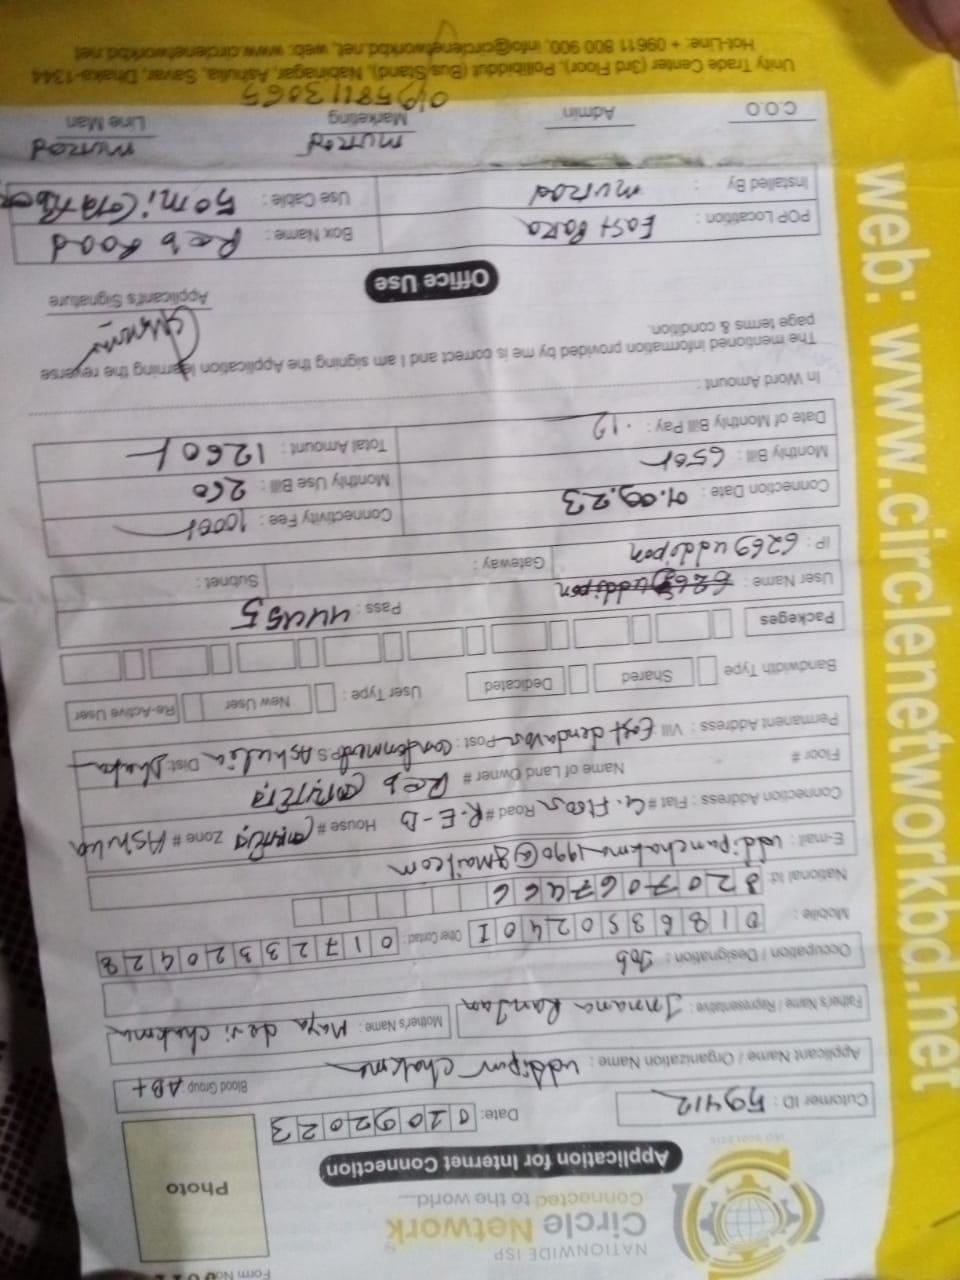 Form No
NATIONWIDE ISP
Circle Network
Connected to the world....
Application for Internet Connection
Photo
Cutomer ID : 59412
Date: 01092023
Blood Group : AB+
Applicant Name / Organization Name : uddipan chakma
Father's Name / Representative :
Mother's Name : Maya devi chakma
Occupation / Designation : Job
Mobile : 01863502401 Other Contact : 01723320428
National Id: 8207067466
E-mail : uddipanchakma1990@gmail.com
Connection Address : Flat # G. Floor Road # R.E-B House # Zone # Ashulia
Floor # Name of Land Owner # Reb
Permanent Address : Vill : East dendavor Post : P.S: Ashulia Dist: Dhaka
Bandwidth Type Shared Dedicated User Type : New User Re-Active User
Packeges
User Name : 6269uddipon Pass : 44455
IP : 6269uddipon Gateway : Subnet :
Connection Date : 01.09.23 Connectivity Fee : 1000/-
Monthly Bill : 650/- Monthly Use Bill : 260
Date of Monthly Bill Pay : .12 Total Amount : 1260/-
In Word Amount :
The mentioned information provided by me is correct and I am signing the Application learning the reverse
page terms & condition.
Applicant's Signature
Office Use
POP Location : East Para Box Name : Reb Road
Installed By : murad Use Cable : 50 mi
murad murad
C.O.O Admin Marketing Line Man
Unity Trade Center (3rd Floor), Pollibiddut (Bus Stand), Nabinagar, Ashulia, Savar, Dhaka-1344
Hot-Line: + 09611 800 900, info@circlenetworkbd.net, web: www.circlenetworkbd.net
web: www.circlenetworkbd.net